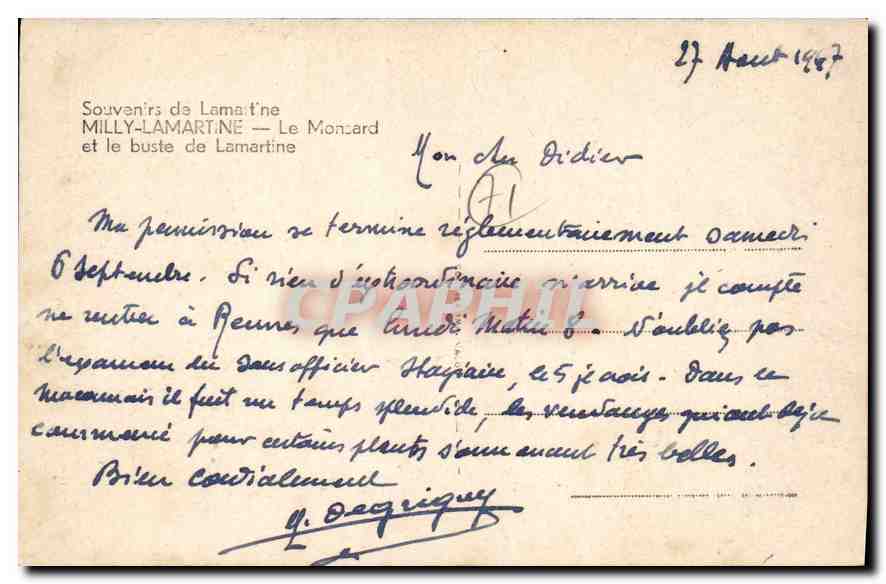 27 Aout 1947
Souvenirs de Lamartine
MILLY-LAMARTINE — Le Monsard
et le buste de Lamartine
Mon cher Didier
71
Ma permission se termine réglementairement samedi
6 Septembre. Si rien d'extraordinaire n'arrive je compte
ne rentrer à Rennes que lundi Matin 8. N'oubliez pas
l'examen du sous officier Stagiaire, le 5 je crois. Dans le
maconnais il fait un temps splendide, les vendanges qui ont déjà
commencé pour certains plants s'annoncent très belles.
Bien cordialement
CPARHIL